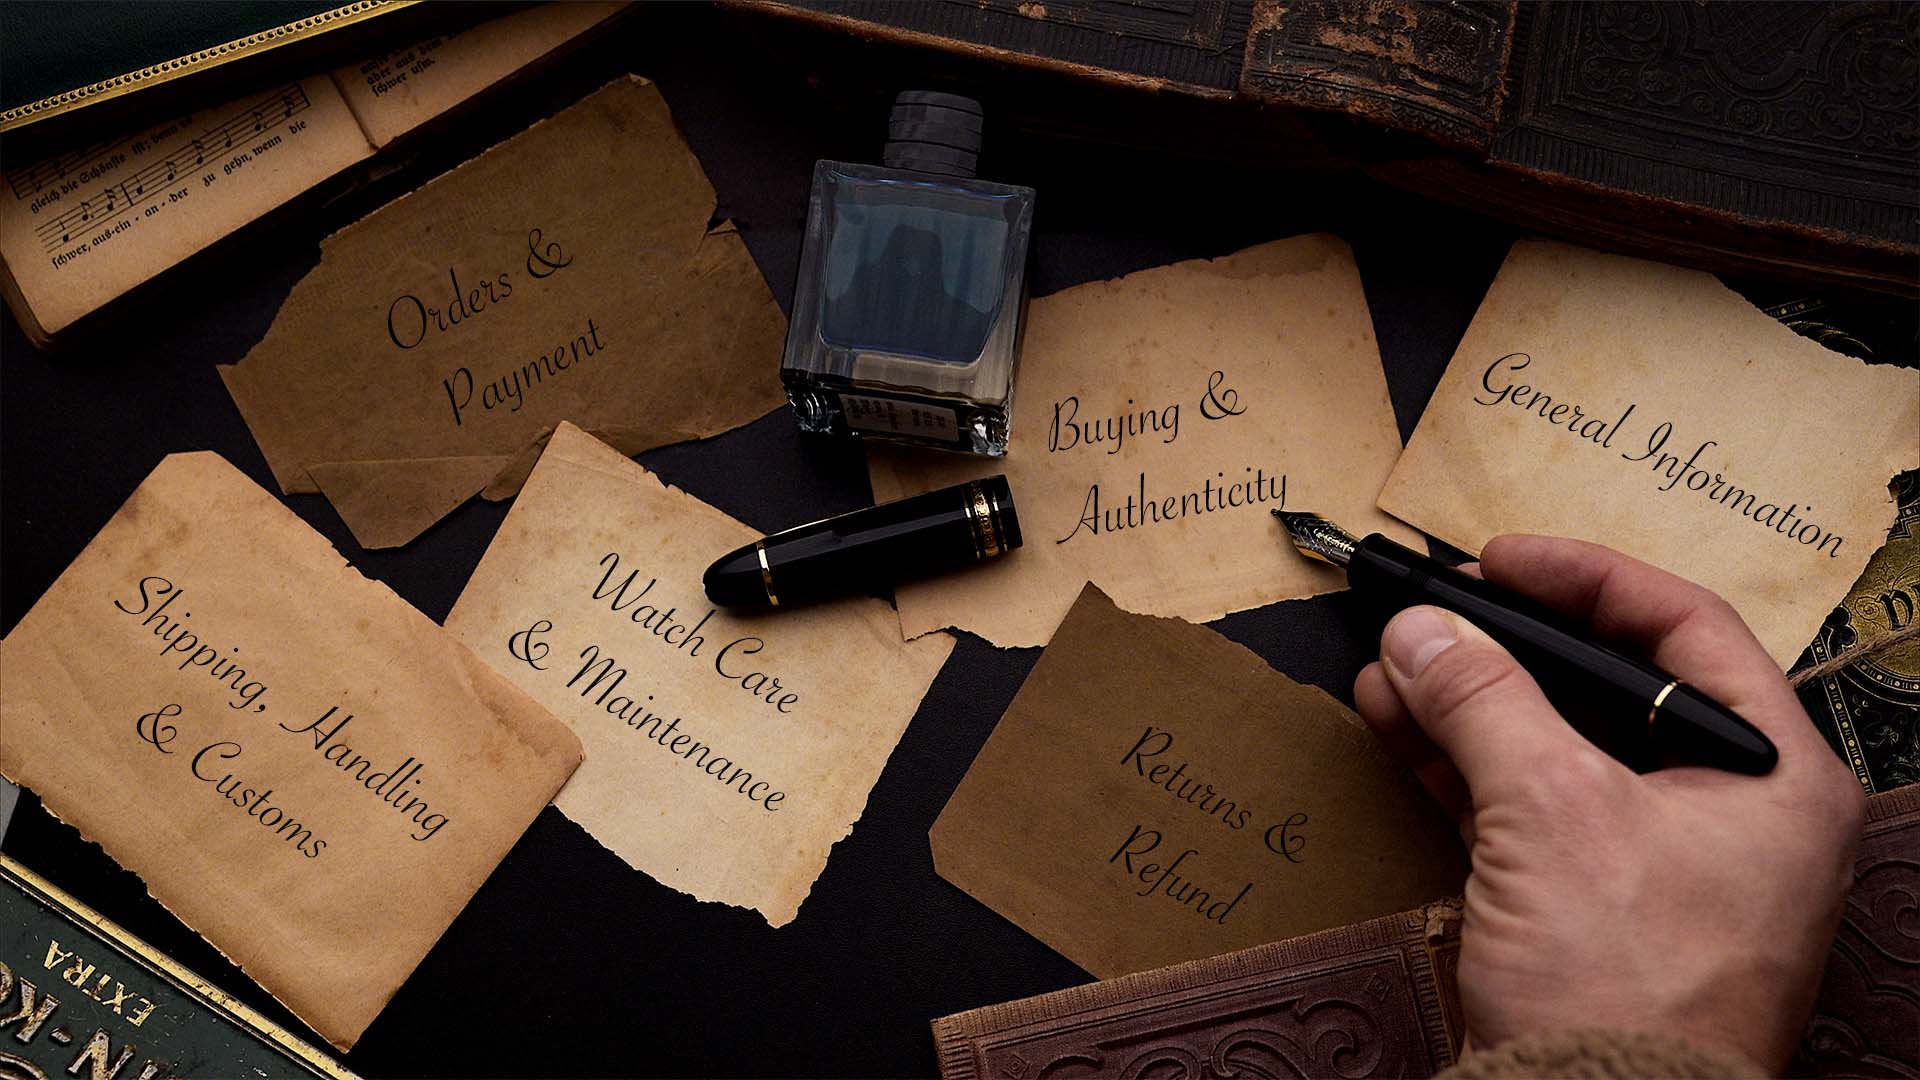 aber aus dem
schwer usw.
gleich die Schönste ist; wenn
schwer, aus-ein - an - der zu gehn, wenn die
Orders &
Payment
Buying &
Authenticity
General Information
Watch Care
& Maintenance
Shipping, Handling
& Customs
Returns &
Refund
EXTRA